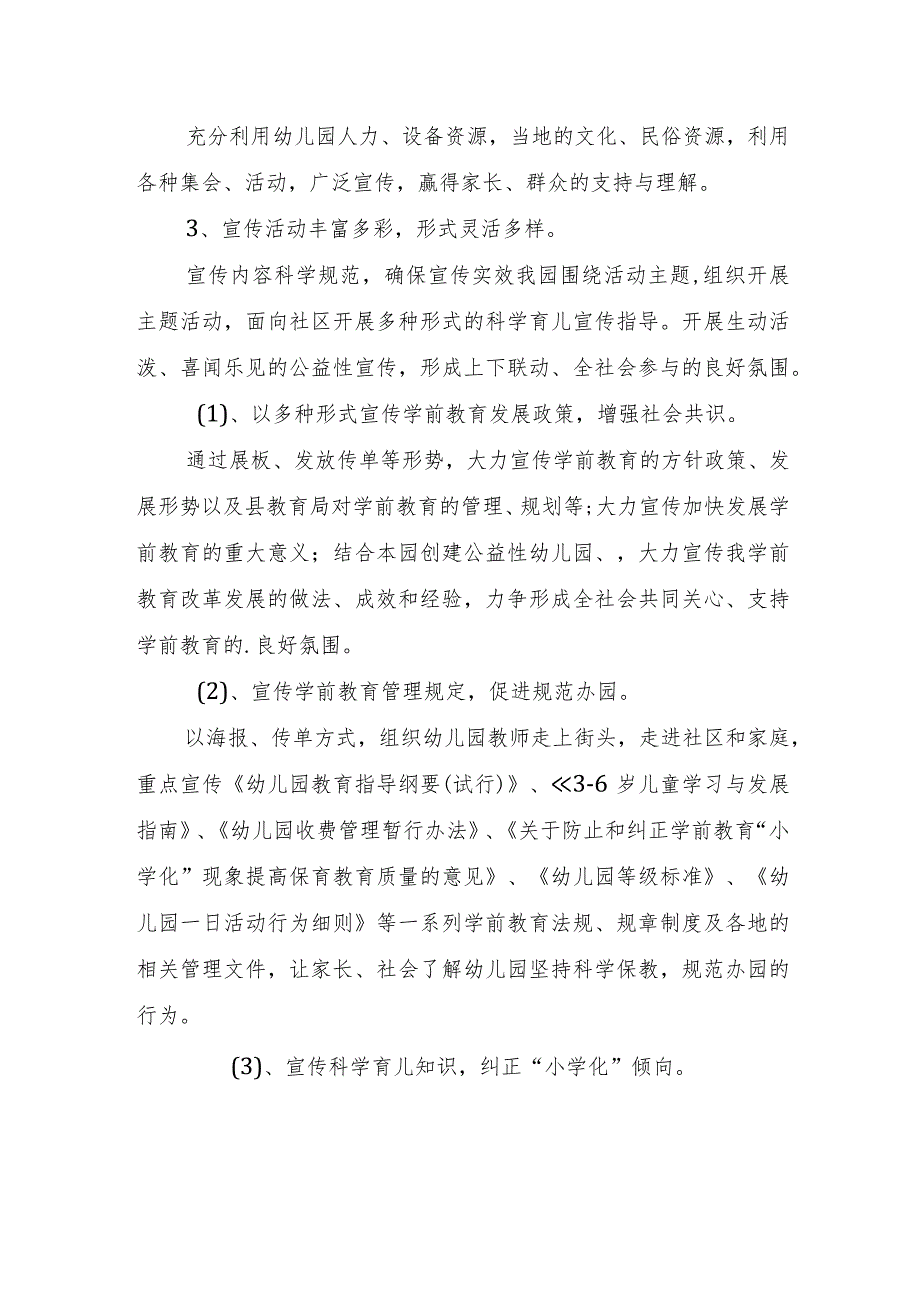 充分利用幼儿园人力、设备资源，当地的文化、民俗资源，利用
各种集会、活动，广泛宣传，赢得家长、群众的支持与理解。
3、宣传活动丰富多彩，形式灵活多样。
宣传内容科学规范，确保宣传实效我园围绕活动主题,组织开展
主题活动，面向社区开展多种形式的科学育儿宣传指导。开展生动活
泼、喜闻乐见的公益性宣传，形成上下联动、全社会参与的良好氛围。
(1)、以多种形式宣传学前教育发展政策，增强社会共识。
通过展板、发放传单等形势，大力宣传学前教育的方针政策、发
展形势以及县教育局对学前教育的管理、规划等;大力宣传加快发展学
前教育的重大意义；结合本园创建公益性幼儿园、，大力宣传我学前
教育改革发展的做法、成效和经验，力争形成全社会共同关心、支持
学前教育的.良好氛围。
(2)、宣传学前教育管理规定，促进规范办园。
以海报、传单方式，组织幼儿园教师走上街头，走进社区和家庭，
重点宣传《幼儿园教育指导纲要(试行)》、≪3-6 岁儿童学习与发展
指南》、《幼儿园收费管理暂行办法》、《关于防止和纠正学前教育“小
学化”现象提高保育教育质量的意见》、《幼儿园等级标准》、《幼
儿园一日活动行为细则》等一系列学前教育法规、规章制度及各地的
相关管理文件，让家长、社会了解幼儿园坚持科学保教，规范办园的
行为。
(3)、宣传科学育儿知识，纠正“小学化”倾向。